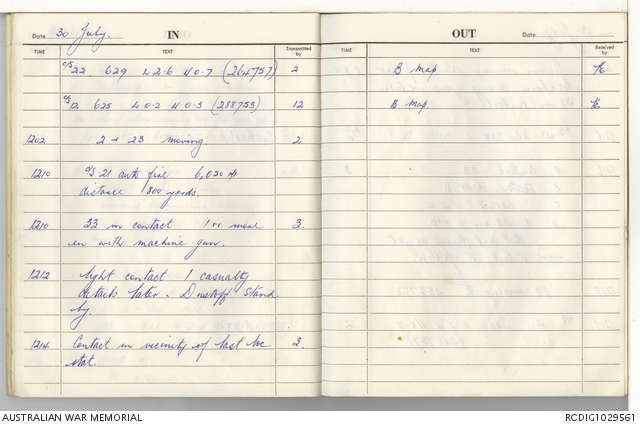 Date 30 July. IN
TIME TEXT Transmitted by
c/s 22. 629 L 2.6 U 0.7 (264757) 2
c/s 12 625 L 0.2 U 0.3 (288753) 12
1202 2 + 23 moving. 2
1210 c/s 21 auto fire 6,050
distance 800 yards.
1210 33 in contact 1 or more 3.
en with machine gun.
1212 light contact 1 casualty
details later - Dustoff stand
by.
1214 Contact in vicinity of last loc 3.
stat.
OUT Date
TIME TEXT Received by
B map
B map.
AUSTRALIAN WAR MEMORIAL RCDIG1029561